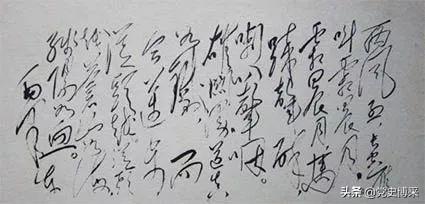 西风烈长空雁
叫霜晨月。
霜晨月，马
蹄声碎，
喇叭声咽。
雄关漫道真
如铁，而
今迈步
从头越从头
越苍山如海
残阳如血。
毛泽东
头条 @党史博采